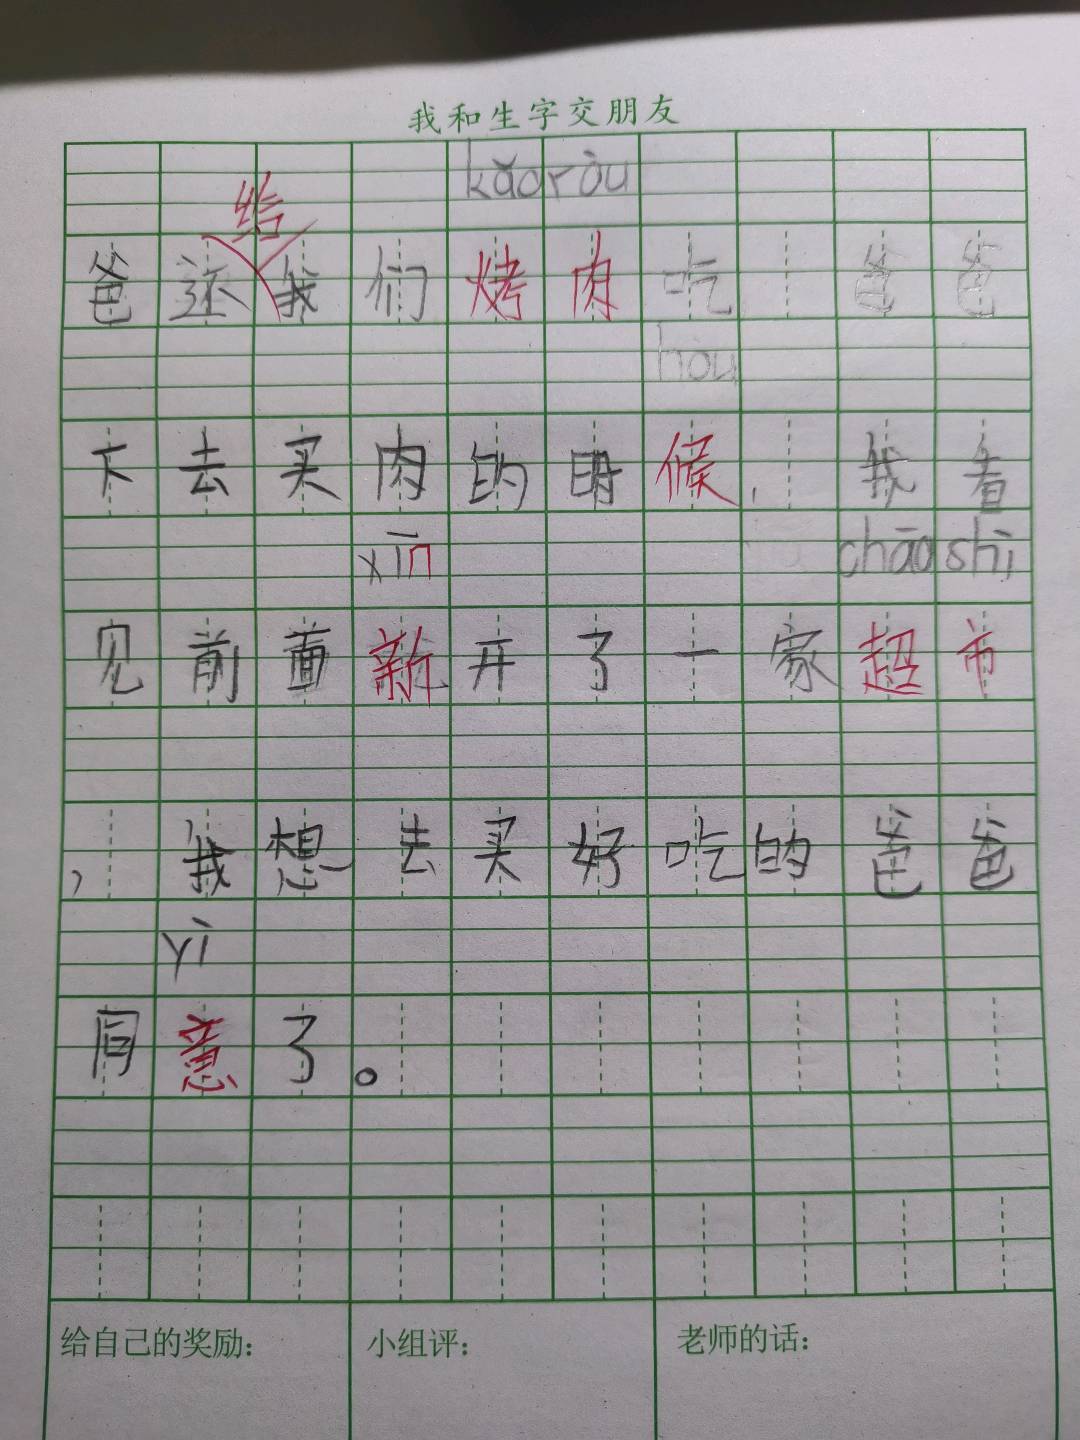 我和生字交朋友
kǎo ròu
给
爸还我们烤肉吃 爸爸
hòu
下去买肉的时候,我看
xīn chāo shì
见前面新开了一家超市
,我想去买好吃的爸爸
yì
同意了。
给自己的奖励: 小组评: 老师的话: